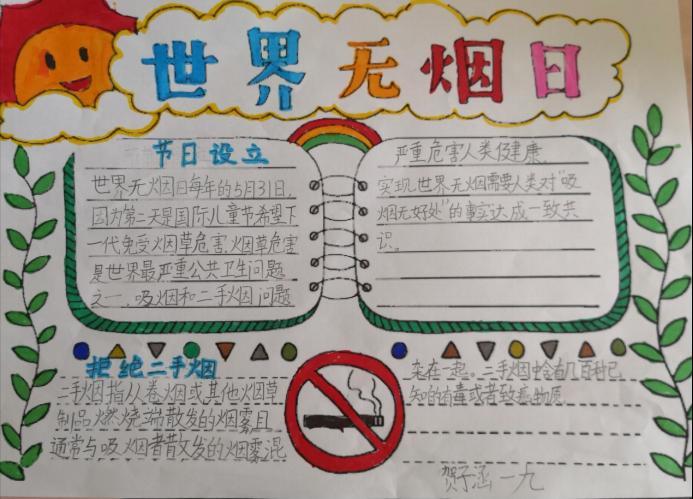 世界无烟日
节日设立
世界无烟日每年的5月31日,
因为第二天是国际儿童节希望下
一代免受烟草危害.烟草危害
是世界最严重公共卫生问题
之一,吸烟和二手烟问题
严重危害人类健康.
实现世界无烟需要人类对"吸
烟无好处"的事实达成一致共
识。
拒绝二手烟
二手烟指从卷烟或其他烟草
制品燃烧端散发的烟雾且
通常与吸烟者散发的烟雾混
杂在一起。二手烟中含有几百种已
知的有毒或者致癌物质
贺子涵一九